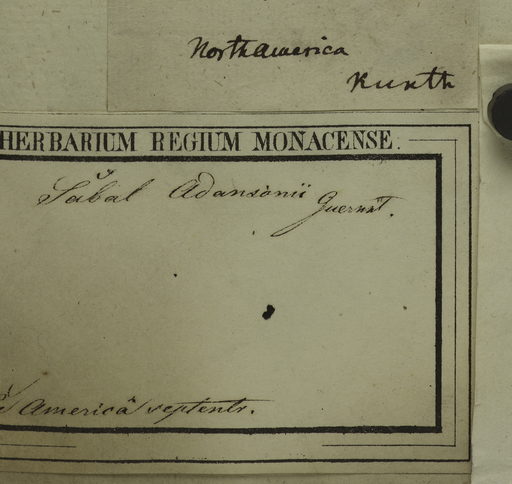 Northamerica
Kunth
HERBARIUM REGIUM MONACENSE.
Sabal Adansonii Guernst.
America septentr.